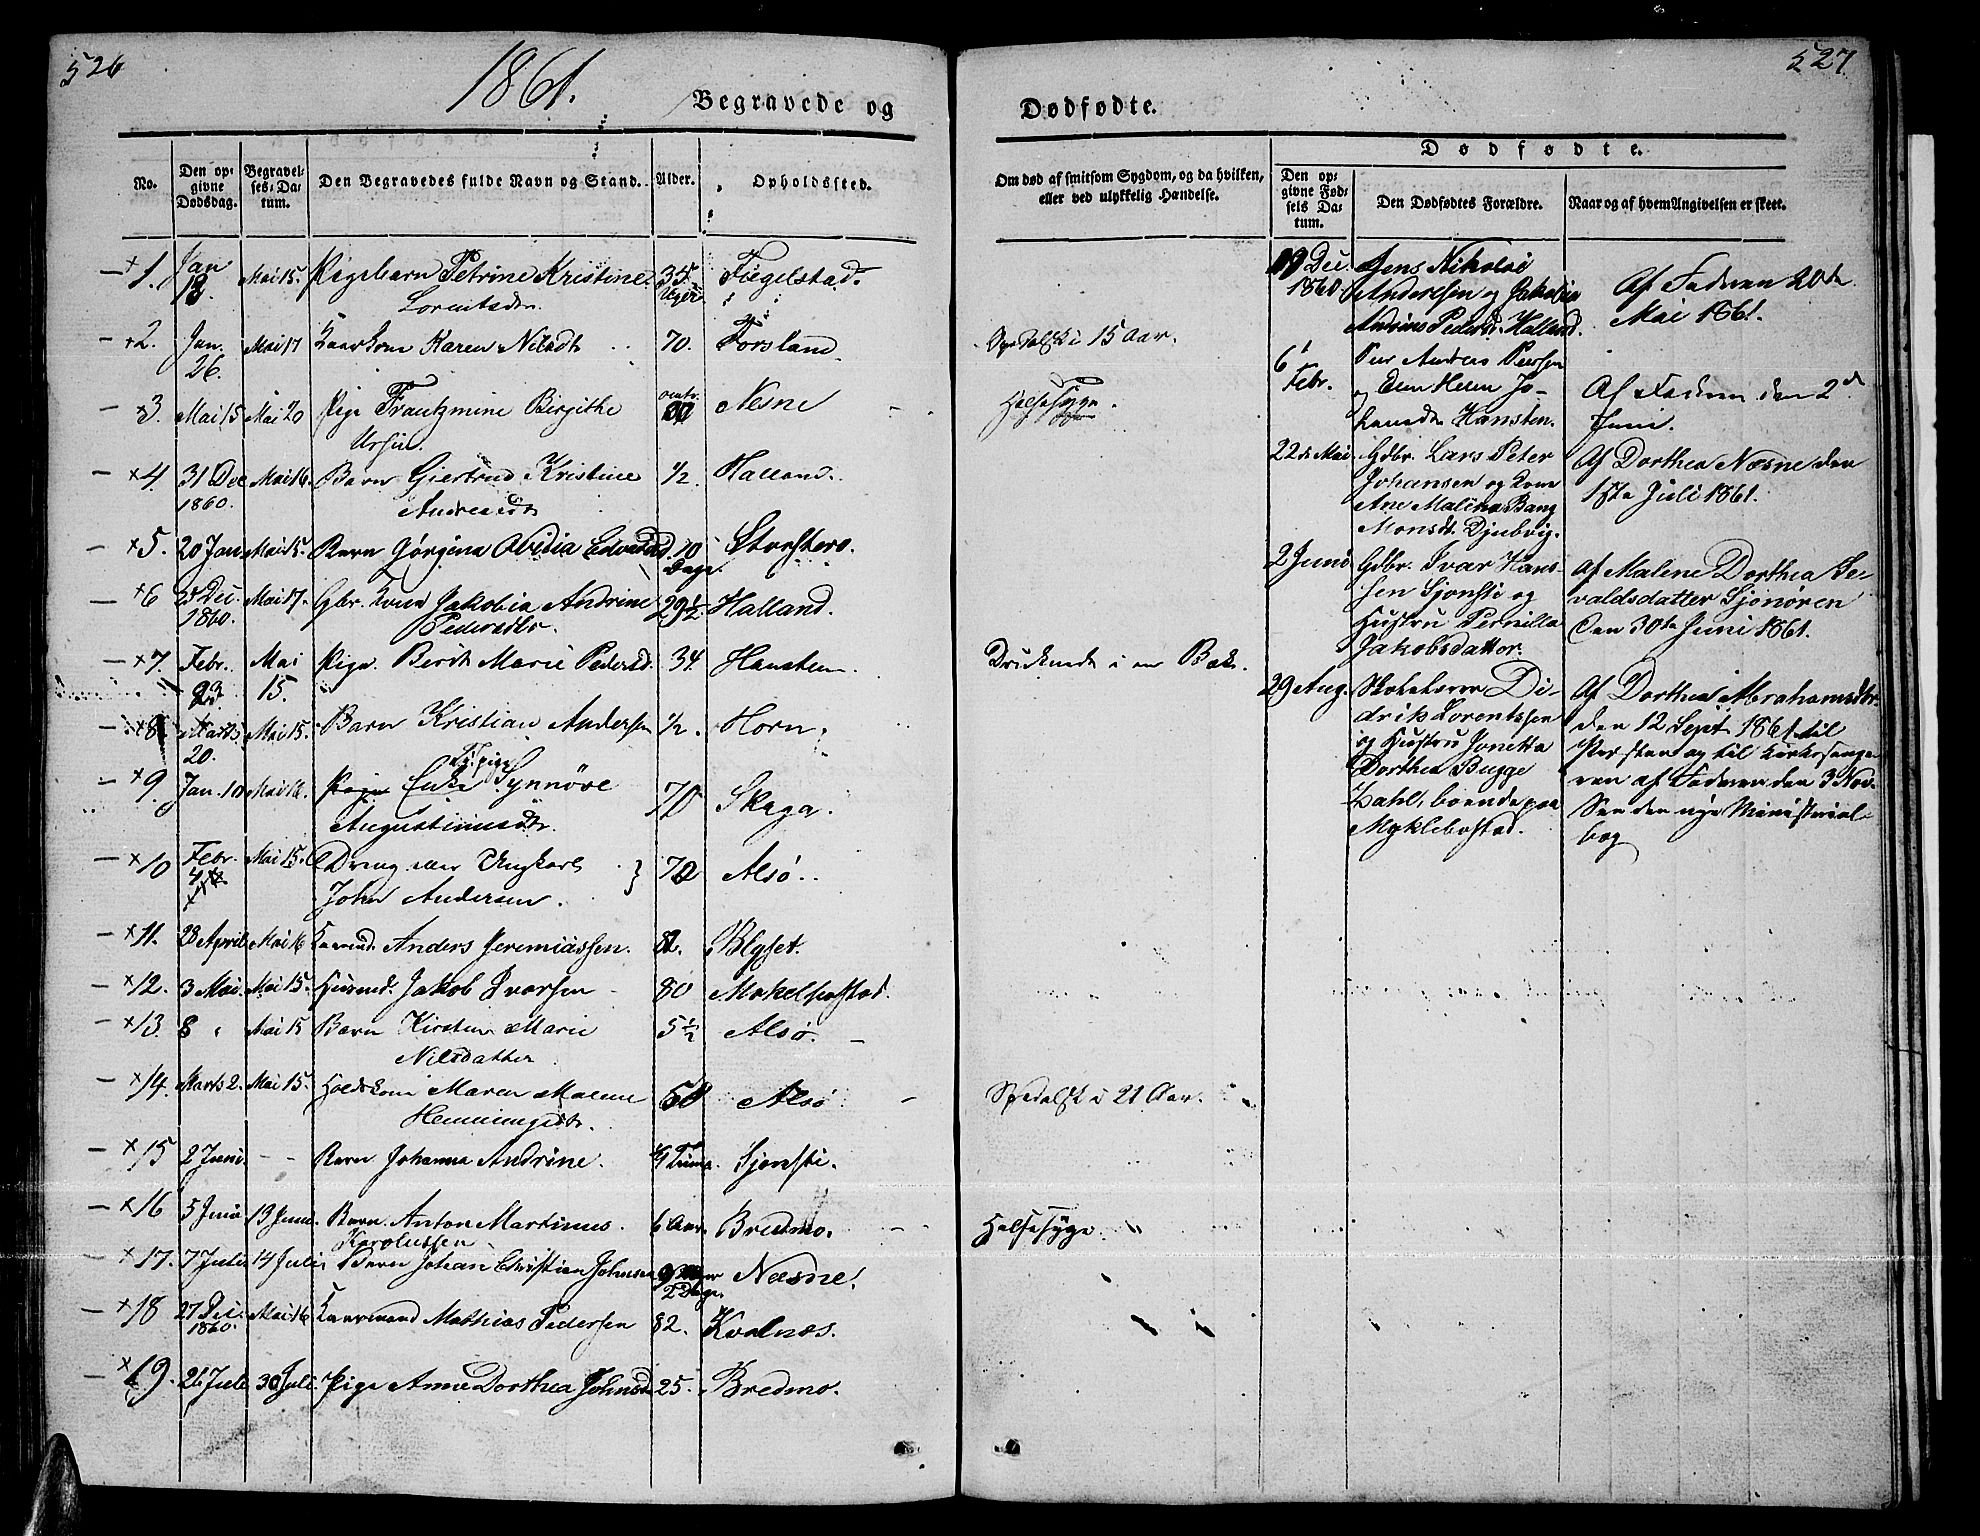 526
1861.
Begravede og
No.
Den opgivne Dødsdag.
Begravelses-Datum.
Den Begravedes fulde Navn og Stand.
Alder.
Opholdssted.
1. Jan 13. Mai 15. Pigebarn Petrine Kristine 35 Uger Fiegelstad.
Lorentsdtr.
2. Jan. 26. Mai 17 Kaarkone Karen Nilsdtr 70. Forsland.
3. Mai 15 Mai 20 Pige Frantzmine Birgithe Nesne
Ursin.
4. 31 Dec 1860. Mai 16. Barn Giertrud Kristine ½. Halland.
Andreasdtr
5. 20 Jan Mai 15. Barn Jørgine Ovidia 10 Dage. Storsters.
6 Dec. 1860. Mai 17. Gbr. Kone Jakobia Andrine 29½ Halland.
Pedersdtr.
7. Febr. 23. Mai 15. Pige. Berit Marie Pedersd. 34. Hansten.
8. Marts 20. Mai 15. Barn Kristian Andersen ½. Horn.
9. Jan. 10 Mai 16. Pige Synnøve 70 Skaga.
Augustinusdtr.
10 Febr. 4 Mai 15. Dreng eller Ungkarl 72 Alsö.
John Andersen.
11. 28 April. Mai 16 Kaarmd. Anders Jeremiassen. 82. Blyset.
12. 3 Mai. Mai 15. Husmd. Jakob Ivarsen 80
13. 8 " Mai 15 Barn Kirsten Marie 5½ Alsö.
Nilsdatter
14. Marts 2. Mai 15. Maren Malene 50 Alsö
Henningsdtr.
15 2 Juni. - - Barn Johanna Andrine. Sjonsti.
16 5 Juni 13 Juni. Barn Anton Martinus 6 Aar. Bredmo.
Karolussen
17. 7 Juli 14 Juli Barn Johan Christian Johnsen 2 Dage. Næsne.
18 27 Dec. 1860. Mai 16 Kaarmand Mathias Pedersen 82. Kvalnæs.
19. 26 Juli 30 Juli. Pige Anne Dorthea Johnsd. 25. Bredmo.
527
Dødfødte.
Om død af smitsom Sygdom, og da hvilken,
eller ved ulykkelig Hændelse.
Dødfødte.
Den opgivne Fødsels Datum.
Den Dødfødtes Forældre.
Naar og af hvem Angivelsen er skeet.
Spedalsk i 15 Aar.
Halsesyge.
Druknede i en Bæk.
Spedalsk i 21 Aar.
Halsesyge.
19 Dec. 1860.
Jens Nikolai
Andersen og Jakobia
Andrine Pedersd. Halland.
Af Faderen 20de
Mai 1861.
6 Febr.
Per Andreas Persen
og Ellen Helena Jo-
hansdtr Hansten.
Af Faderen den 2d
Juni.
22de Mai
Gdbr. Lars Peter
Johansen og Kone
Ane Malina Bang
Monsdt. Djubvig.
Af Dorthea Næsne den
15de Juli 1861.
2 Juni
Gdbr. Ivar Hans-
sen Sjonsti og
Hustru Pernilla
Jakobsdatter.
Af Malene Dorthea Se-
valdsdatter Sjonøren
den 30te Juni 1861.
29 Aug.
Skolelærer Di-
drik Lorentssen
og Hustru Jonetta
Dorthea Bugge
Zahl, boende paa
Myklebostad.
Af Dorthea Abrahamsdtr.
den 12 Sept. 1861 til
Presten og til Kirkesange-
ren af Faderen den 3 Nov.
See den nye Ministerial-
bog